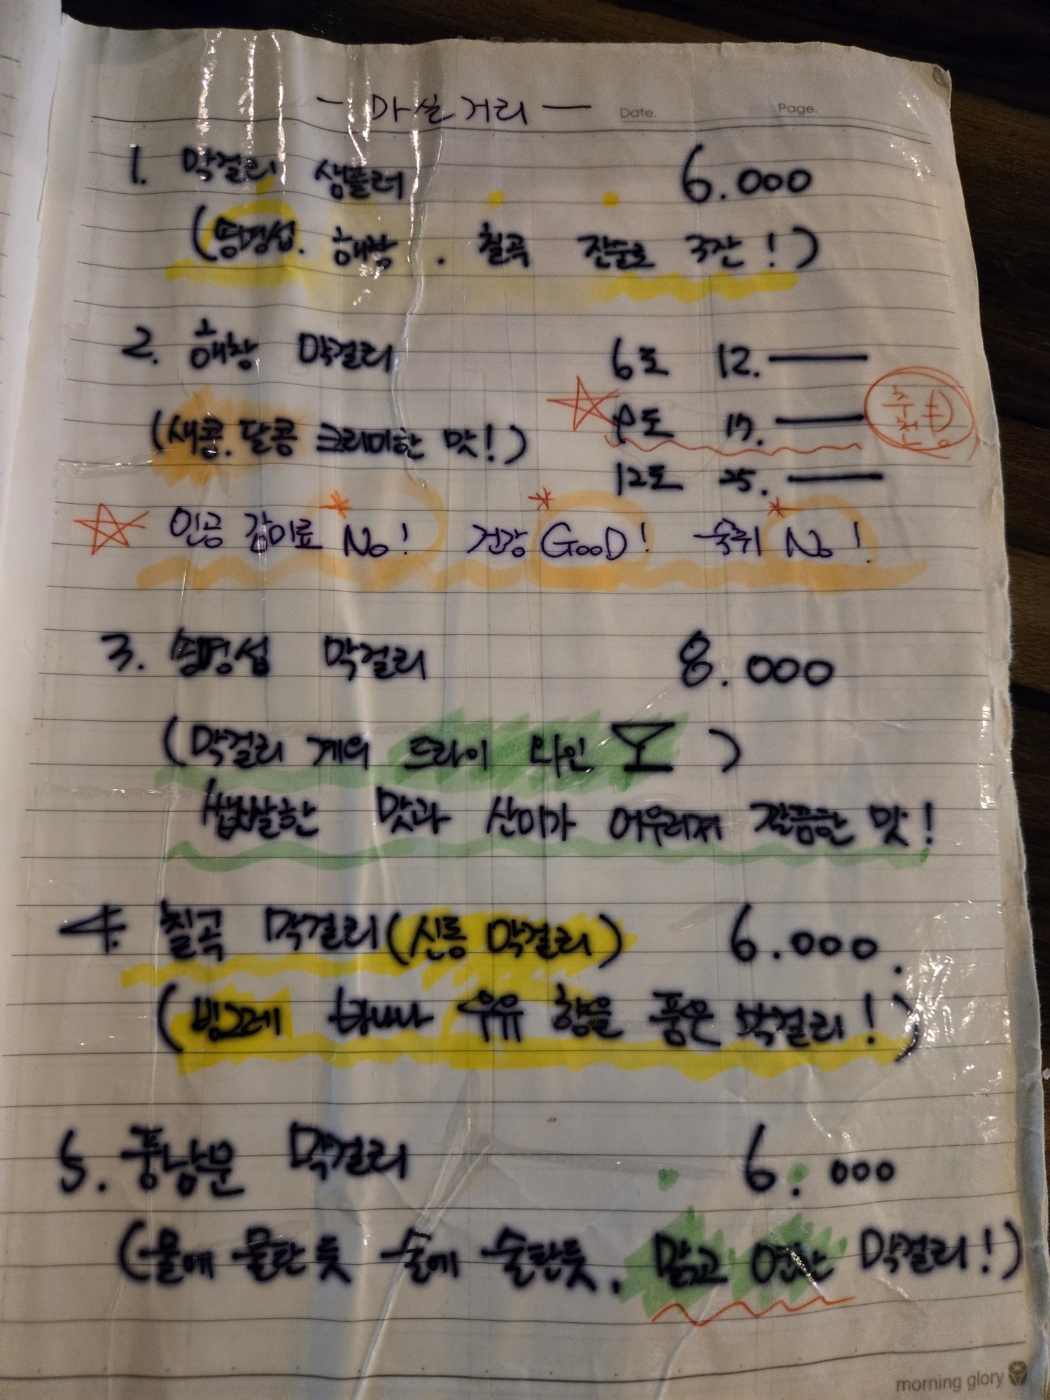 - 마실거리 -
Date. Page.
1. 막걸리 샘플러 6.000
(송명섭. 해창. 칠곡 잔술로 3잔!)
2. 해창 막걸리 6도 12.—
(새콤. 달콤 크리미한 맛!) 9도 17.— 추천
12도 25.—
인공 감미료 No! 건강 GooD! 숙취 No!
3. 송명섭 막걸리 8.000
(막걸리 계의 드라이 와인)
쌉쌀한 맛과 산미가 어우러져 깔끔한 맛!
4. 칠곡 막걸리(신동 막걸리) 6.000.
(빙그레 바나나 우유 향을 품은 막걸리!)
5. 풍남문 막걸리 6.000
(물에 물탄듯 술에 술탄듯, 맑고 연한 막걸리!)
morning glory